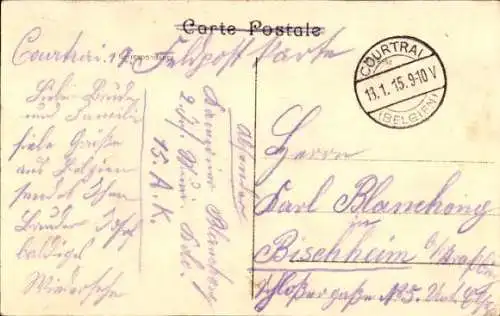 Carte Postale
Feldpost Karte
Courtrai
COURTRAI
13.1.15.9-10V
(BELGIEN)
Lieber Bruder
und Familie
viele Grüße
aus Belgien
sendet Ihr
Bruder Josef
baldiges
Wiedersehn
Absender
Kanonier Blanchong
2
15. A.K.
Herrn
Karl Blanchong
in
Bischheim b/Straßb.
Schloßergaße No 5.